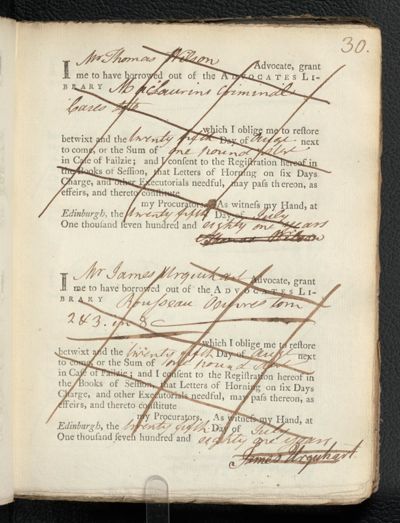 30.
I Mr Thomas Wilson Advocate, grant
me to have borrowed out of the ADVOCATES LI-
BRARY McLaurins Criminal
Cases 4to
which I oblige me to reſtore
betwixt and the twenty fifth Day of Augt. next
to come, or the Sum of one pound ster
in Caſe of Failzie; and I conſent to the Regiſtration hereof in
the Books of Seſſion, that Letters of Horning on ſix Days
Charge, and other Executorials needful, may paſs thereon, as
effeirs, and thereto conſtitute
my Procurators. As witneſs my Hand, at
Edinburgh, the twenty fifth Day of July
One thouſand ſeven hundred and eighty one years
Thomas Wilson
I Mr James Urquhart Advocate, grant
me to have borrowed out of the ADVOCATES LI-
BRARY Rousseau Oeuvres tom
2 & 3. in 8
which I oblige me to reſtore
betwixt and the twenty fifth Day of Augt next
to come, or the Sum of one pound ster
in Caſe of Failzie; and I conſent to the Regiſtration hereof in
the Books of Seſſion, that Letters of Horning on ſix Days
Charge, and other Executorials needful, may paſs thereon, as
effeirs, and thereto conſtitute
my Procurators. As witneſs my Hand, at
Edinburgh, the twenty fifth Day of July
One thouſand ſeven hundred and eighty one years
James Urquhart